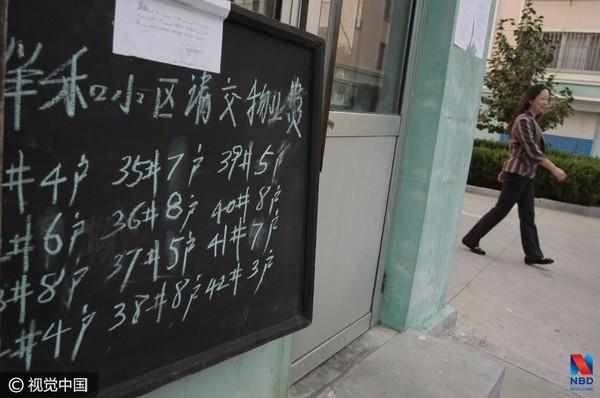 祥和小区请交物业费
#4户 35#7户 39#5户
#6户 36#8户 40#8户
#8户 37#5户 41#7户
#4户 38#8户 42#3户
© 视觉中国
NBD